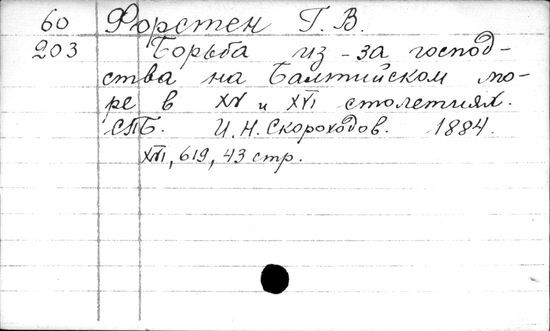 60 Форстен Г. В.
203 Борьба из-за господ-
ства на Балтийском мо-
ре в XV и XVI столетиях.
СПБ. И. Н. Скороходов. 1884.
XVI, 619, 43 стр.